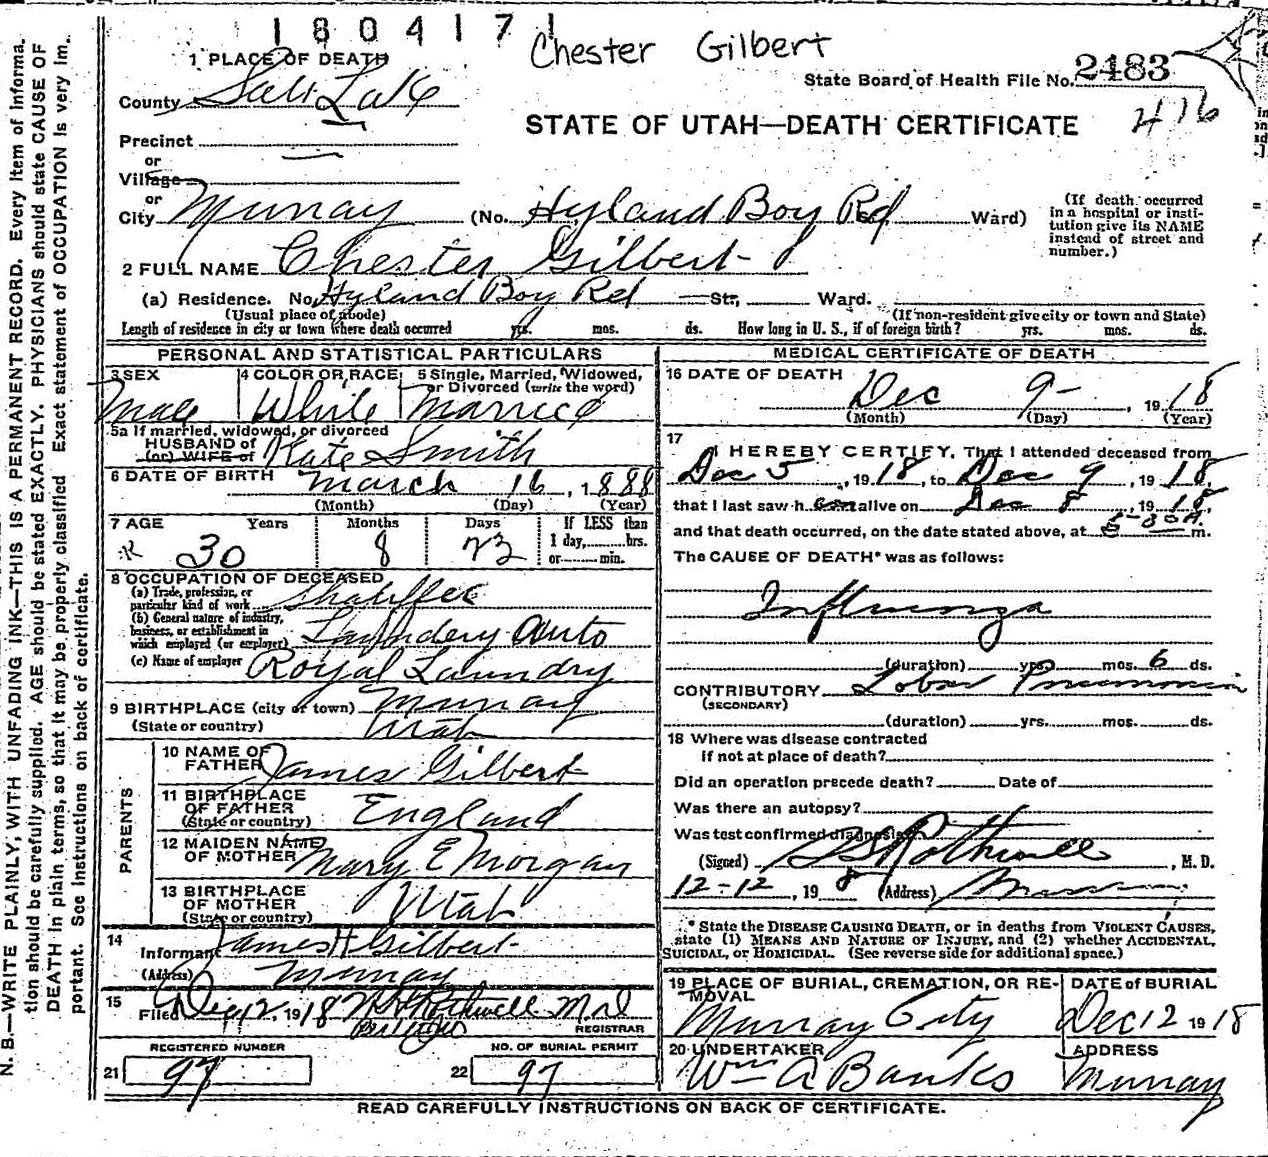 1804171
Chester Gilbert
1 PLACE OF DEATH
State Board of Health File No. 2483
County Salt Lake
416
STATE OF UTAH—DEATH CERTIFICATE
Precinct
or
Village
or
City Murray (No. Hyland Boy Rd Ward)
(If death occurred in a hospital or insti-
tution give its NAME instead of street and number.)
2 FULL NAME Chester Gilbert
(a) Residence. No. Hyland Boy Rd St., Ward.
(Usual place of abode) (If non-resident give city or town and State)
Length of residence in city or town where death occurred yrs. mos. ds. How long in U. S., if of foreign birth? yrs. mos. ds.
PERSONAL AND STATISTICAL PARTICULARS
3 SEX 4 COLOR OR RACE 5 Single, Married, Widowed,
or Divorced (write the word)
Male White Married
5a If married, widowed, or divorced
HUSBAND of
(or) WIFE of Kate Smith
6 DATE OF BIRTH March 16, 1888
(Month) (Day) (Year)
7 AGE Years Months Days If LESS than
1 day, hrs.
or min.
30 8 23
8 OCCUPATION OF DECEASED
(a) Trade, profession, or
particular kind of work
(b) General nature of industry,
business, or establishment in
which employed (or employer) Laundery Auto
(c) Name of employer Royal Laundry
9 BIRTHPLACE (city or town) Murray
(State or country) Utah
PARENTS
10 NAME OF
FATHER James Gilbert
11 BIRTHPLACE
OF FATHER
(State or country) England
12 MAIDEN NAME
OF MOTHER Mary E Morgan
13 BIRTHPLACE
OF MOTHER
(State or country) Utah
14
Informant James H Gilbert
(Address) Murray
15
Filed Dec 12, 1918 Rothwell M.D
REGISTRAR
REGISTERED NUMBER NO. OF BURIAL PERMIT
21 97 22 97
MEDICAL CERTIFICATE OF DEATH
16 DATE OF DEATH
Dec 9- , 1918
(Month) (Day) (Year)
17
I HEREBY CERTIFY, That I attended deceased from
Dec 5, 1918, to Dec 9, 1918,
that I last saw h alive on Dec 8, 1918,
and that death occurred, on the date stated above, at m.
The CAUSE OF DEATH* was as follows:
Influenza
(duration) yrs. mos. 6 ds.
CONTRIBUTORY Lobar Pneumonia
(SECONDARY)
(duration) yrs. mos. ds.
18 Where was disease contracted
if not at place of death?
Did an operation precede death? Date of
Was there an autopsy?
Was test confirmed diagnosis
(Signed) Rothwell, M. D.
12-12, 19 8 (Address)
* State the DISEASE CAUSING DEATH, or in deaths from VIOLENT CAUSES,
state (1) MEANS AND NATURE OF INJURY, and (2) whether ACCIDENTAL,
SUICIDAL, or HOMICIDAL. (See reverse side for additional space.)
19 PLACE OF BURIAL, CREMATION, OR RE-
MOVAL
DATE of BURIAL
Murray City Dec 12 1918
20 UNDERTAKER ADDRESS
Wm A Banks Murray
READ CAREFULLY INSTRUCTIONS ON BACK OF CERTIFICATE.
N. B.—WRITE PLAINLY, WITH UNFADING INK—THIS IS A PERMANENT RECORD. Every item of informa-
tion should be carefully supplied. AGE should be stated EXACTLY. PHYSICIANS should state CAUSE OF
DEATH in plain terms, so that it may be properly classified Exact statement of OCCUPATION is very im-
portant. See instructions on back of certificate.